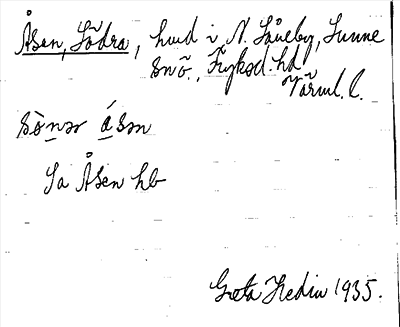 Åsen, Södra, hmd i N. Låneby, Sunne
snö., Fryksd. hd
Värml. l.
sö̀nər ásən
Sa Åsen hb
Greta Hedin 1935.